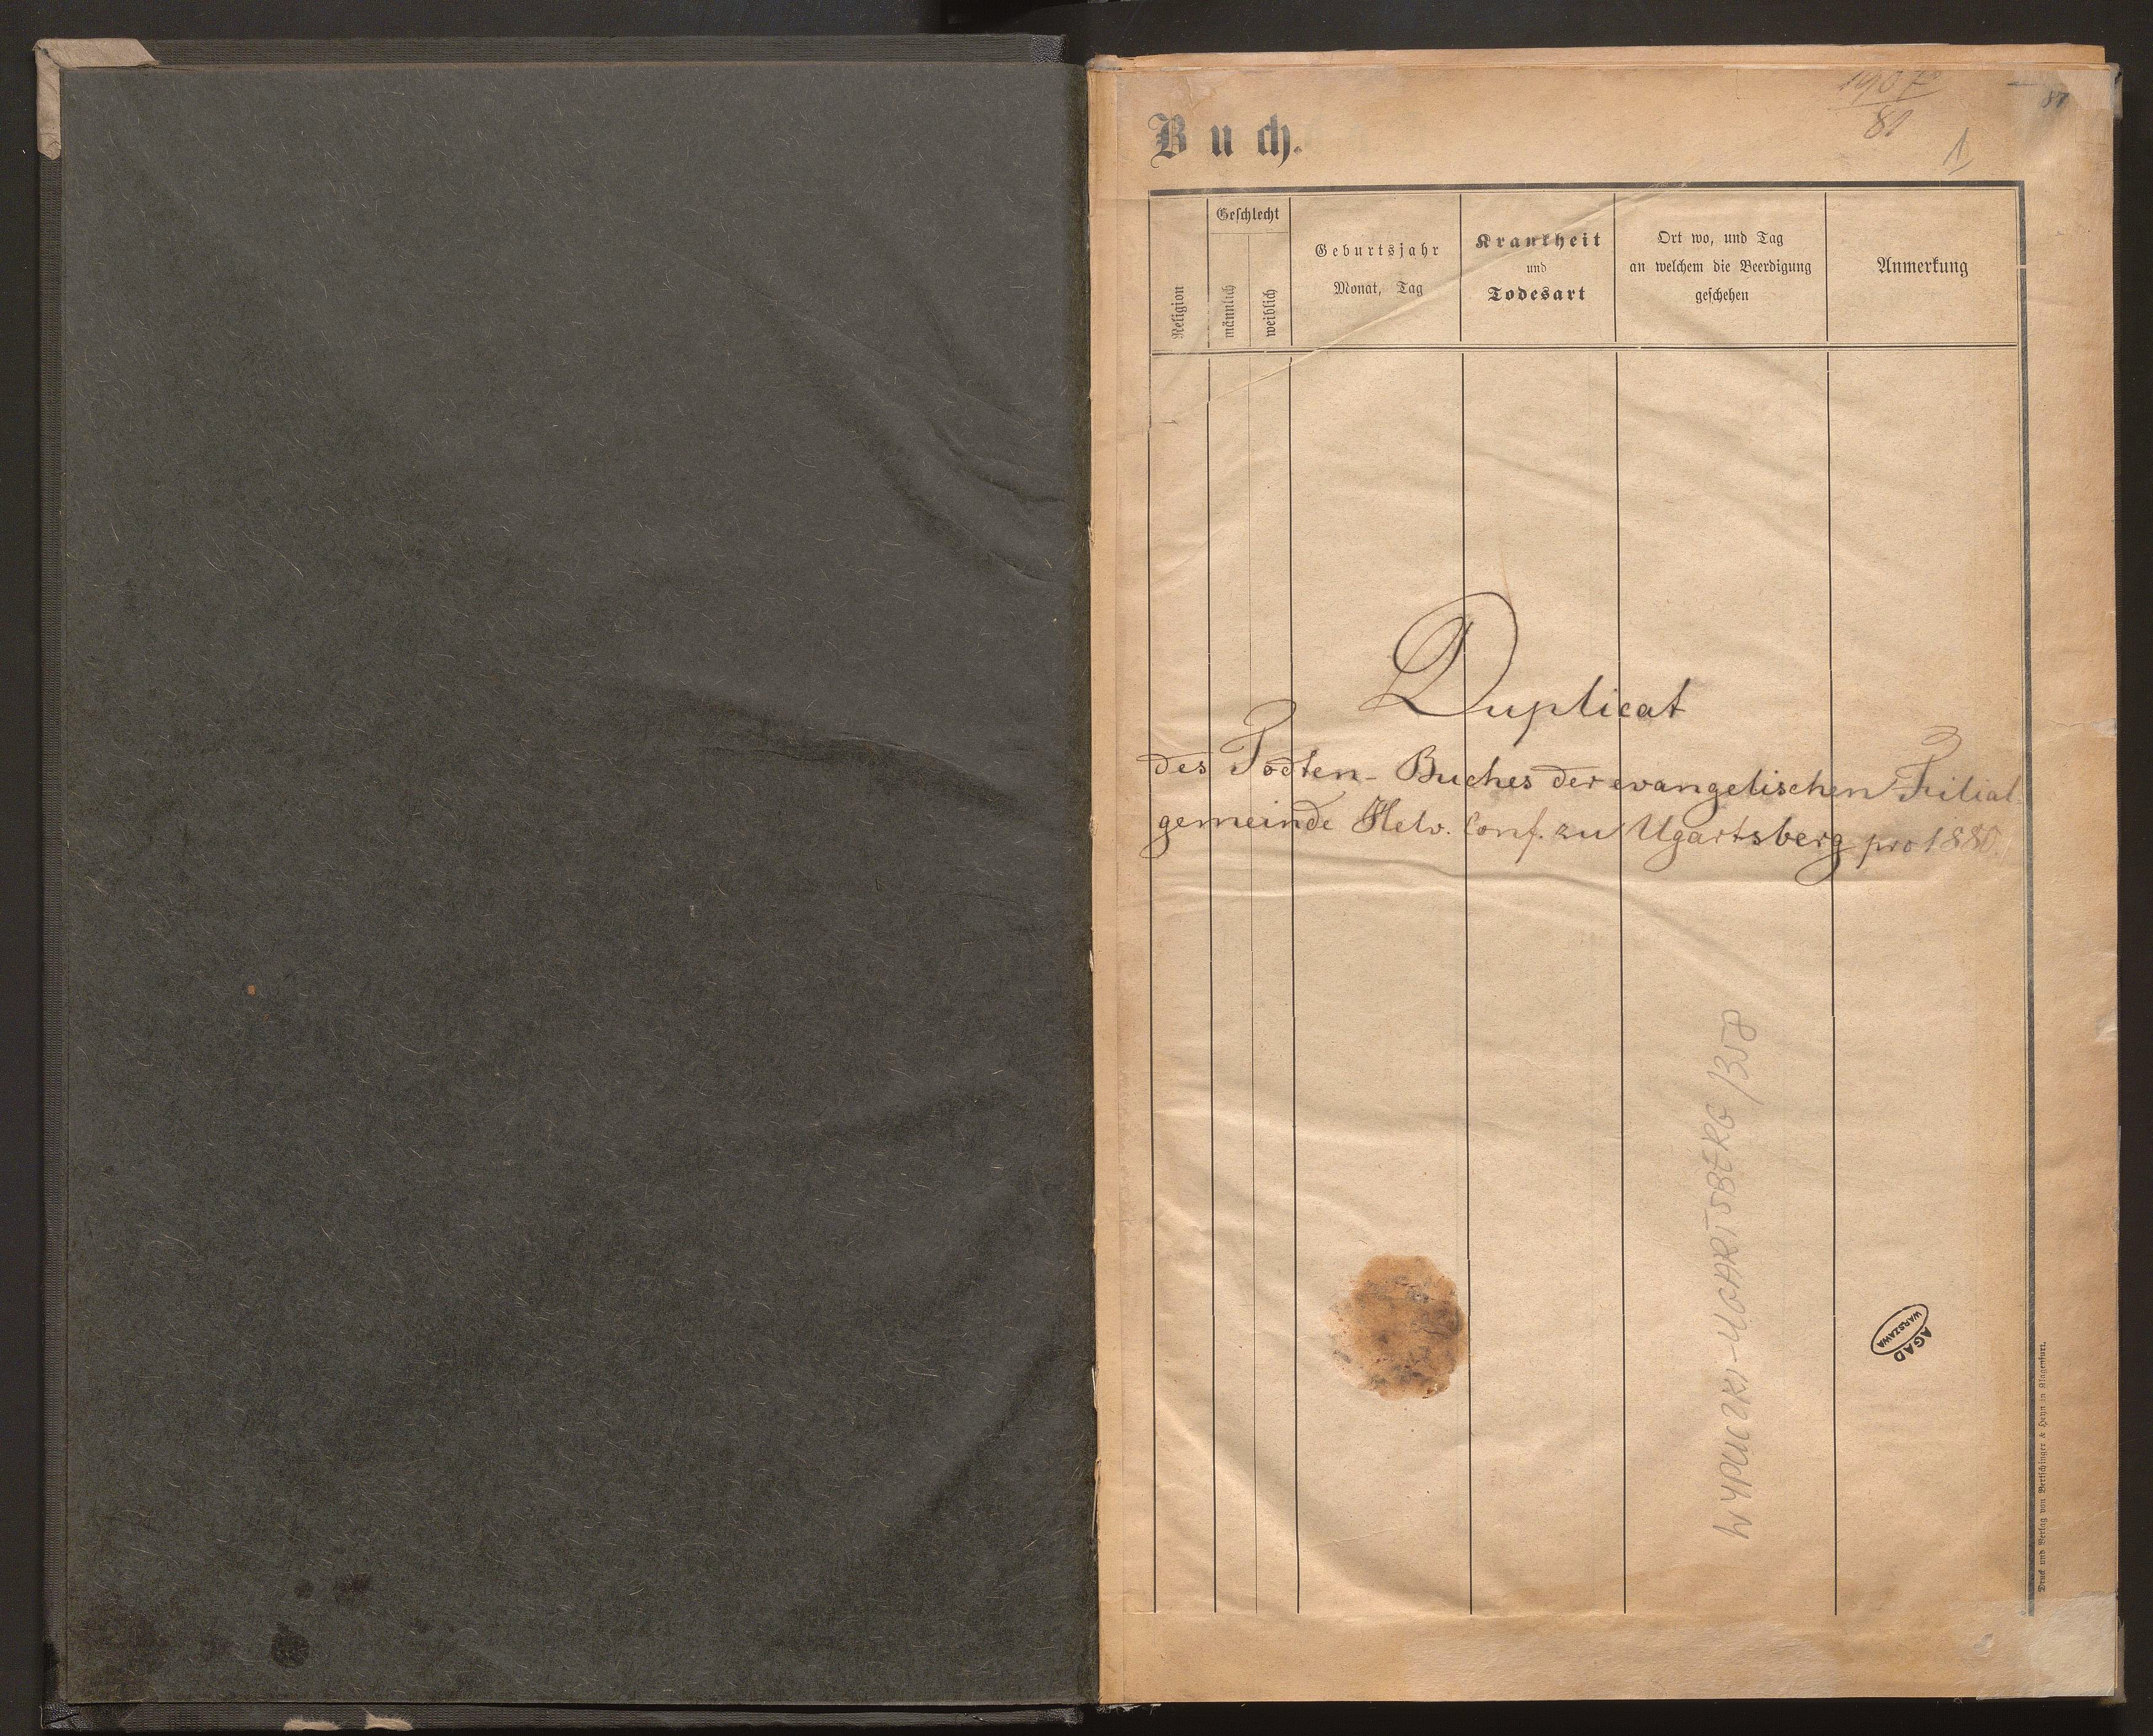 1907
81
87
1
Buch.
Religion
Geschlecht
männlich
weiblich
Geburtsjahr
Monat, Tag
Krankheit
und
Todesart
Ort wo, und Tag
an welchem die Beerdigung
geschehen
Anmerkung
Duplicat
des Todten-Buches der evangelischen Filial-
gemeinde Helv. Conf. zu Ugartsberg pro 1880.
WYPUCZKI-UGARTSBERG /358
AGAD
WARSZAWA
Druck und Verlag von Bertschinger & Heyn in Klagenfurt.